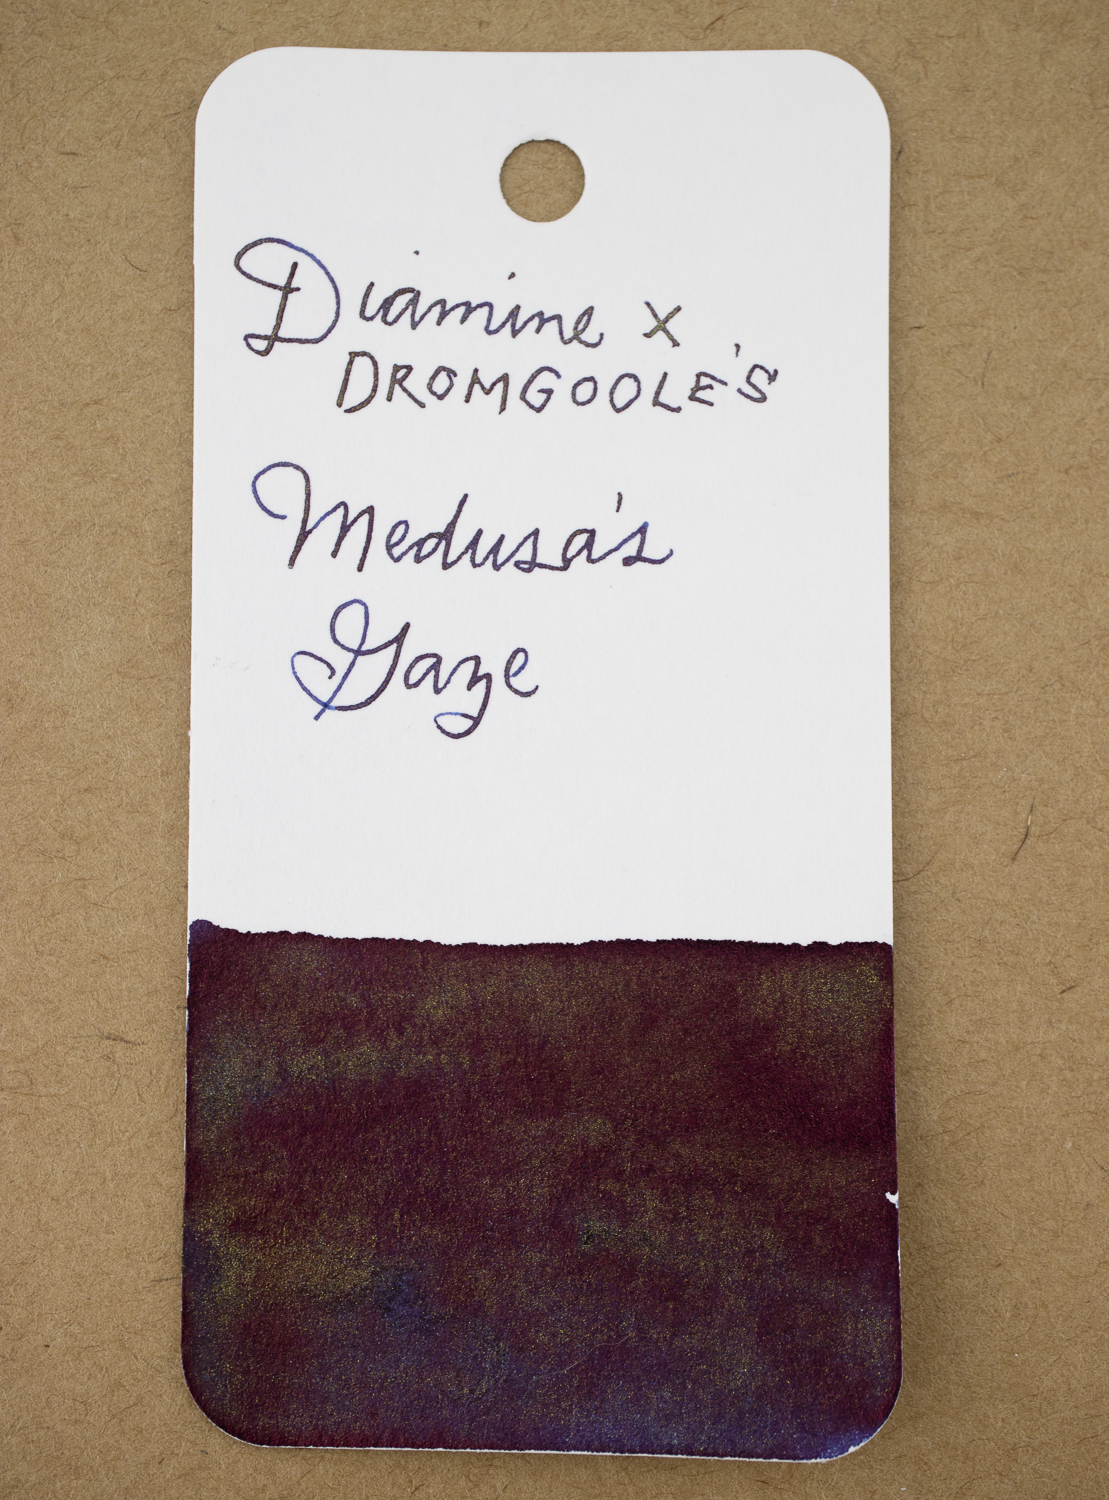 Diamine x
DROMGOOLE'S
Medusa's
Gaze